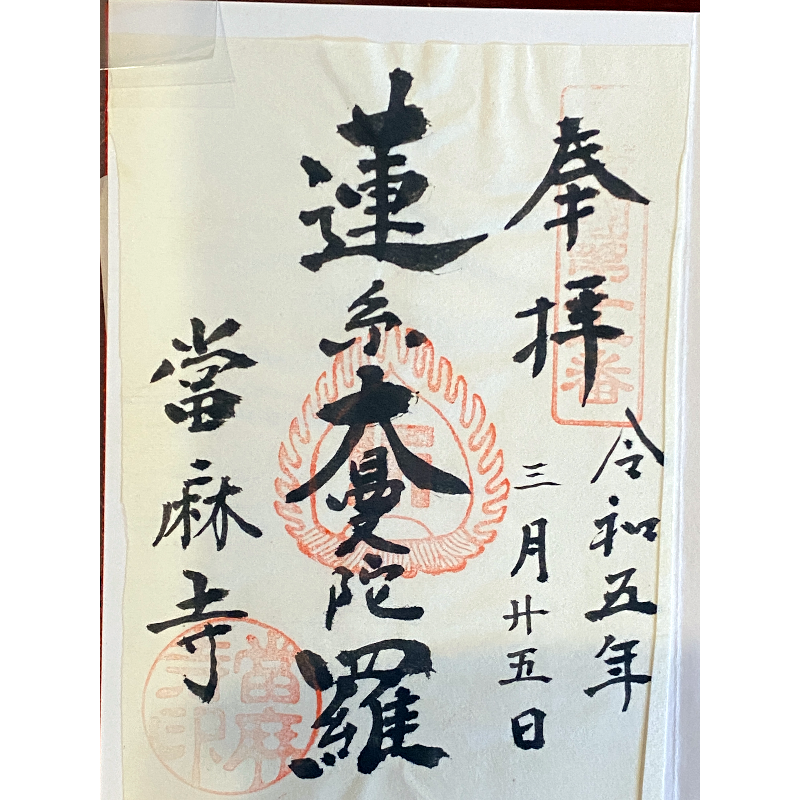 奉拝
令和五年
三月廿五日
蓮糸大曼陀羅
當麻寺
當麻寺印